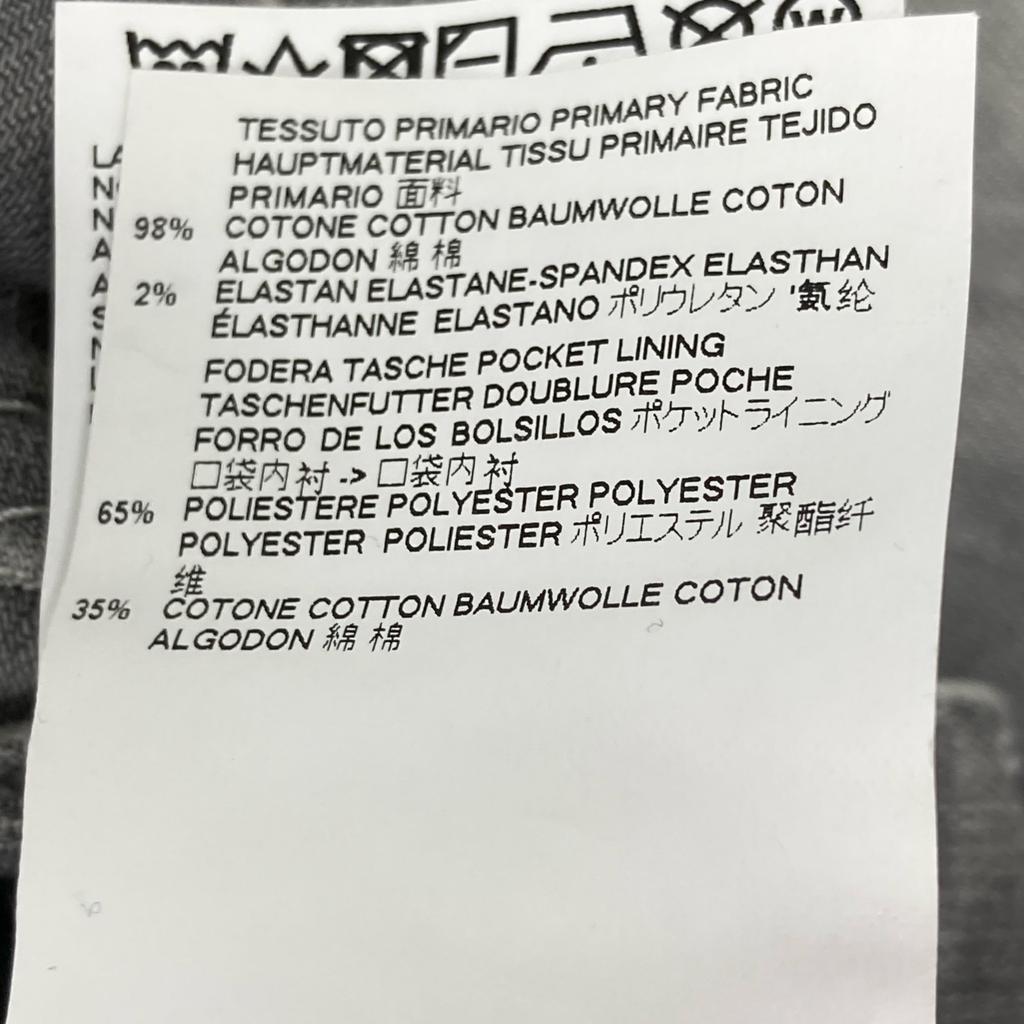 TESSUTO PRIMARIO PRIMARY FABRIC
HAUPTMATERIAL TISSU PRIMAIRE TEJIDO
PRIMARIO 面料
98% COTONE COTTON BAUMWOLLE COTON
ALGODON 綿 棉
2% ELASTAN ELASTANE-SPANDEX ELASTHAN
ÉLASTHANNE ELASTANO ポリウレタン '氨纶
FODERA TASCHE POCKET LINING
TASCHENFUTTER DOUBLURE POCHE
FORRO DE LOS BOLSILLOS ポケットライニング
口袋内衬 -> 口袋内衬
65% POLIESTERE POLYESTER POLYESTER
POLYESTER POLIESTER ポリエステル 聚酯纤
维
35% COTONE COTTON BAUMWOLLE COTON
ALGODON 綿 棉